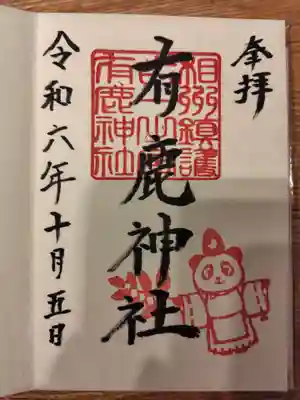 奉拝
相州鎮護
有鹿神社
有鹿神社
令和六年十月五日